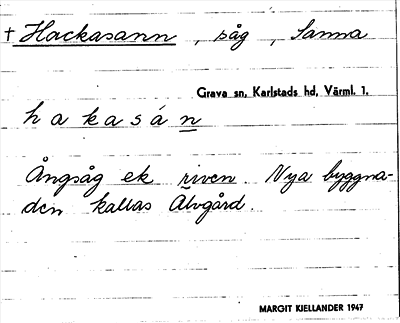 † Hackasann, såg, Sanna
Grava sn, Karlstads hd, Värml. 1.
hakasán
Ångsåg ek riven. Nya byggna-
den kallas Älvgård.
MARGIT KJELLANDER 1947